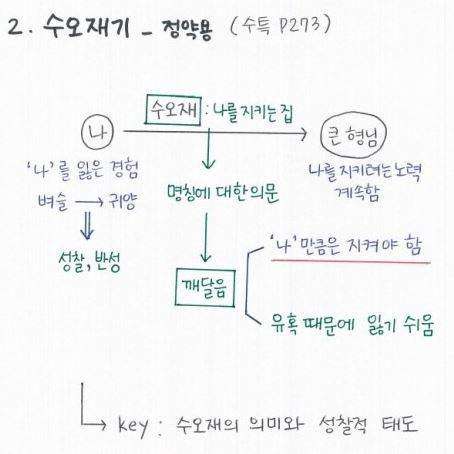 2. 수오재기 - 정약용 (수특 P273)
수오재 : 나를 지키는 집
나
큰 형님
'나'를 잃은 경험
벼슬 → 귀양
성찰, 반성
명칭에 대한 의문
깨달음
나를 지키려는 노력
계속함
'나'만큼은 지켜야 함
유혹 때문에 잃기 쉬움
key : 수오재의 의미와 성찰적 태도